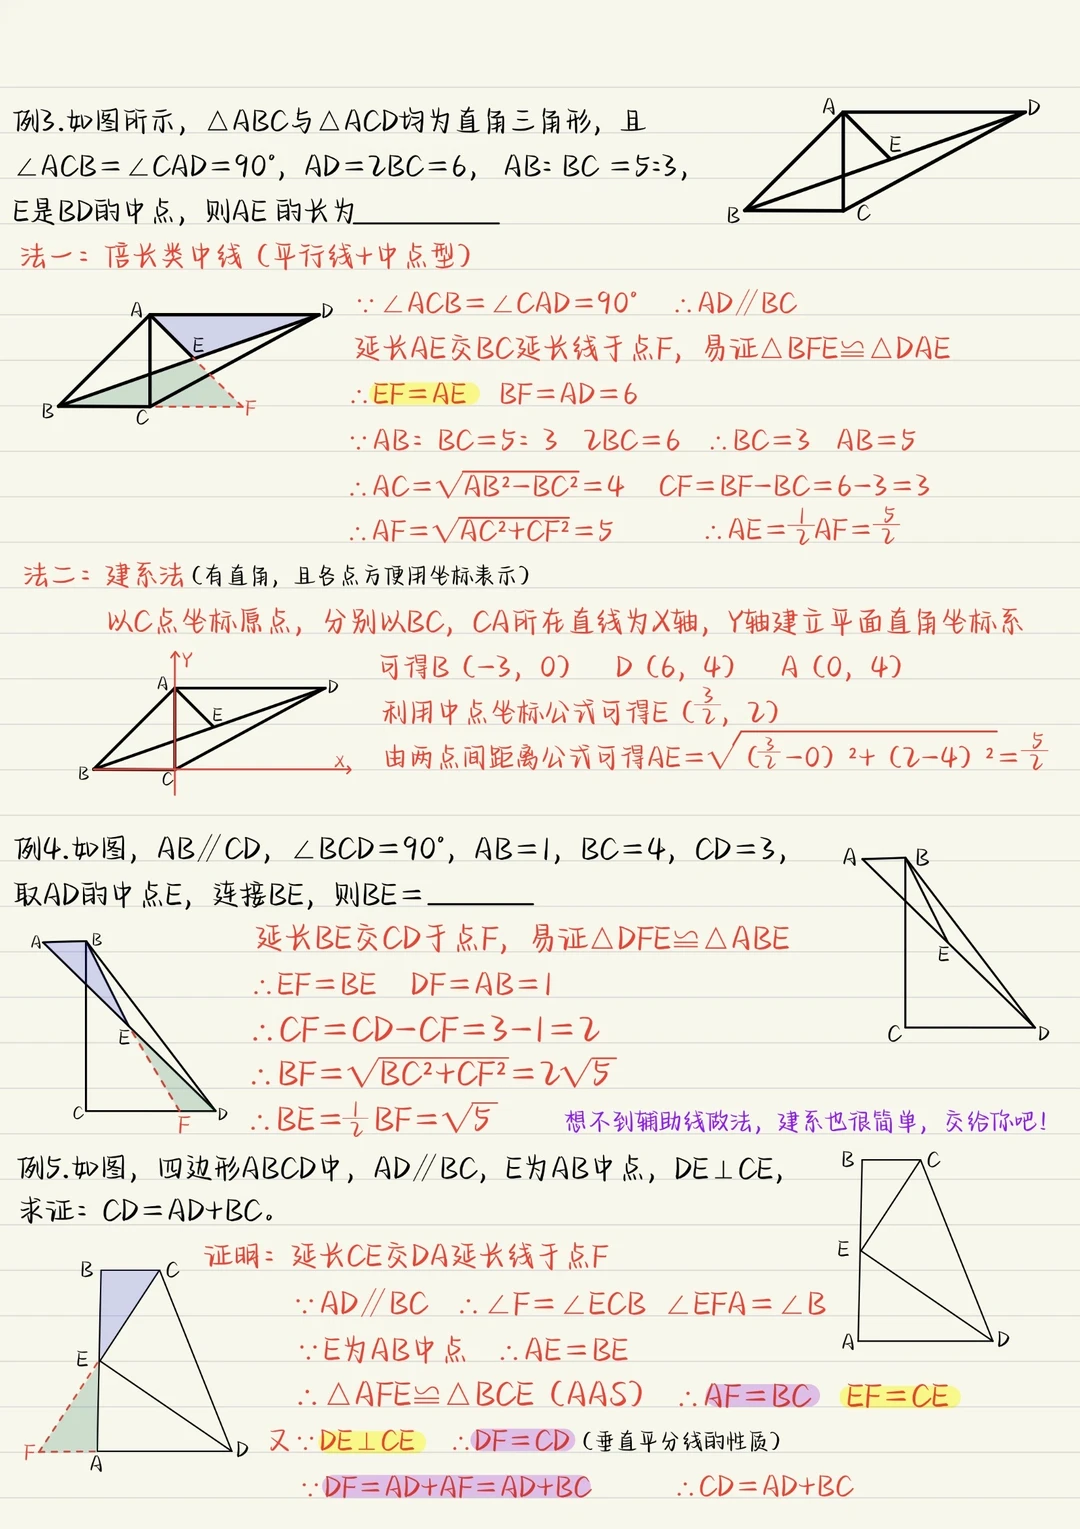 例3.如图所示，△ABC与△ACD均为直角三角形，且
∠ACB=∠CAD=90°，AD=2BC=6， AB：BC =5:3，
E是BD的中点，则AE 的长为__________
A
D
E
B
C
法一：倍长类中线（平行线+中点型）
A
D
E
B
C
F
∵∠ACB=∠CAD=90° ∴AD∥BC
延长AE交BC延长线于点F，易证△BFE≌△DAE
∴EF=AE BF=AD=6
∵AB：BC=5：3 2BC=6 ∴BC=3 AB=5
∴AC=√AB²-BC²=4 CF=BF-BC=6-3=3
∴AF=√AC²+CF²=5 ∴AE=1/2AF=5/2
法二：建系法（有直角，且各点方便用坐标表示）
以C点坐标原点，分别以BC，CA所在直线为X轴，Y轴建立平面直角坐标系
Y
A
D
E
B
C
X
可得B（-3，0） D（6，4） A（0，4）
利用中点坐标公式可得E（3/2，2）
由两点间距离公式可得AE=√（3/2-0）²+（2-4）²=5/2
例4.如图，AB∥CD，∠BCD=90°，AB=1，BC=4，CD=3，
取AD的中点E，连接BE，则BE=________
A
B
E
C
D
A
B
E
C
F
D
延长BE交CD于点F，易证△DFE≌△ABE
∴EF=BE DF=AB=1
∴CF=CD-CF=3-1=2
∴BF=√BC²+CF²=2√5
∴BE=1/2 BF=√5
想不到辅助线做法，建系也很简单，交给你吧！
例5.如图，四边形ABCD中，AD∥BC，E为AB中点，DE⊥CE，
求证：CD=AD+BC。
B
C
E
A
D
B
C
E
F
A
D
证明：延长CE交DA延长线于点F
∵AD∥BC ∴∠F=∠ECB ∠EFA=∠B
∵E为AB中点 ∴AE=BE
∴△AFE≌△BCE（AAS） ∴AF=BC EF=CE
又∵DE⊥CE ∴DF=CD（垂直平分线的性质）
∵DF=AD+AF=AD+BC ∴CD=AD+BC